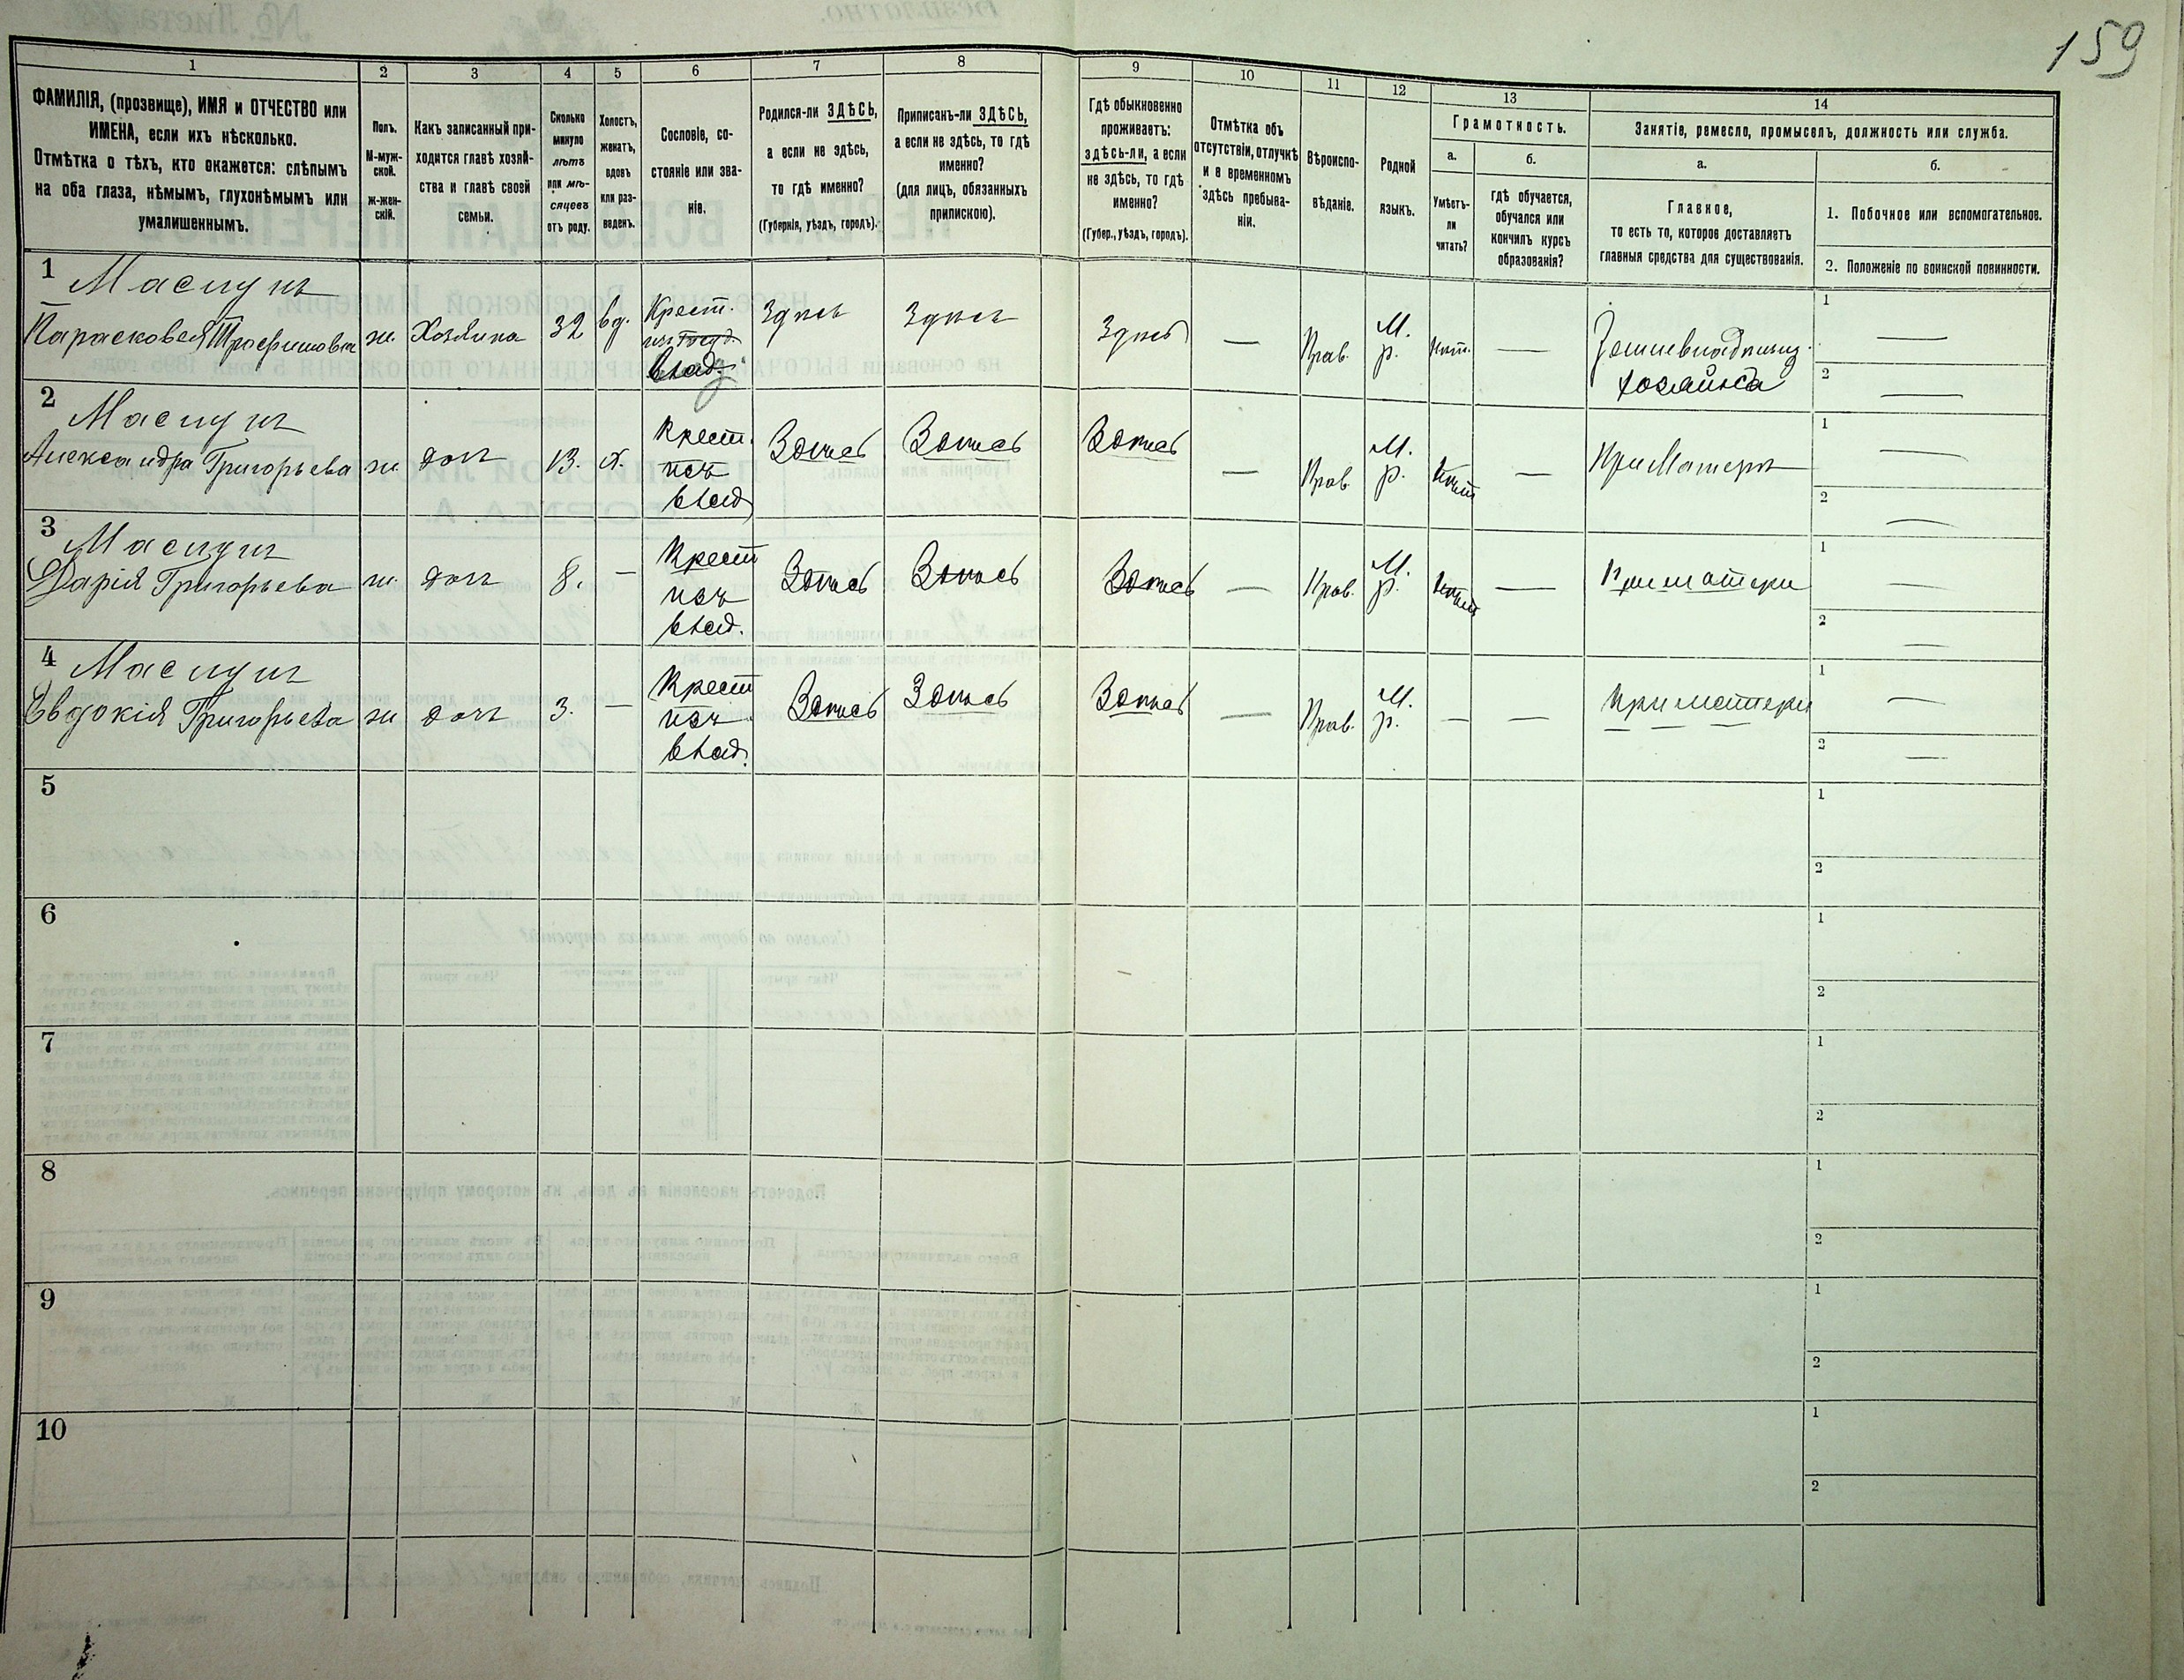 159
1 2 3 4 5 6 7 8 9 10 11 12 13 14
ФАМИЛІЯ, (прозвище), ИМЯ и ОТЧЕСТВО или
ИМЕНА, если ихъ нѣсколько.
Отмѣтка о тѣхъ, кто окажется: слѣпымъ
на оба глаза, нѣмымъ, глухонѣмымъ или
умалишеннымъ.
Полъ.
М-муж-
ской.
ж-жен-
скій.
Какъ записанный при-
ходится главѣ хозяй-
ства и главѣ своей
семьи.
Сколько
минуло
лѣтъ
или мѣ-
сяцевъ
отъ роду.
Холостъ,
женатъ,
вдовъ
или раз-
веденъ.
Сословіе, со-
стояніе или зва-
ніе.
Родился-ли ЗДѢСЬ,
а если не здѣсь,
то гдѣ именно?
(Губернія, уѣздъ, городъ).
Приписанъ-ли ЗДѢСЬ,
а если не здѣсь, то гдѣ
именно?
(для лицъ, обязанныхъ
припискою).
Гдѣ обыкновенно
проживаетъ:
здѣсь-ли, а если
не здѣсь, то гдѣ
именно?
(Губер., уѣздъ, городъ).
Отмѣтка объ
отсутствіи, отлучкѣ
и о временномъ
здѣсь пребыва-
ніи.
Вѣроиспо-
вѣданіе.
Родной
языкъ.
Грамотность.
а.
Умѣетъ-
ли
читать?
б.
гдѣ обучается,
обучался или
кончилъ курсъ
образованія?
Занятіе, ремесло, промыселъ, должность или служба.
а.
Главное,
то есть то, которое доставляетъ
главныя средства для существованія.
б.
1. Побочное или вспомогательное.
2. Положеніе по воинской повинности.
1 Маслунъ 1
Парасковея Трофимовна ж. Хозяика 32 вд. Крест. Здѣсь Здѣсь Здѣсь — Прав. М. р. Нѣт. — —
влад. хозяйка 2 —
2 Маслунъ 1
Александра Григорьева ж. дочь 13. х. Крест. изъ влад Здѣсь Здѣсь Здѣсь — Прав. М. р. Нѣт — При Матери —
2 —
3 Маслунъ 1
Дарія Григорьева ж. дочь 8. — Крест изъ влад. Здѣсь Здѣсь Здѣсь — Прав. М. р. Нѣт — При матери —
2 —
4 Маслунъ 1
Евдокія Григорьева ж дочь 3. — Крест изъ влад. Здѣсь Здѣсь Здѣсь — Прав. М. р. — — При матери —
2 —
5 1
2
6 1
2
7 1
2
8 1
2
9 1
2
10 1
2